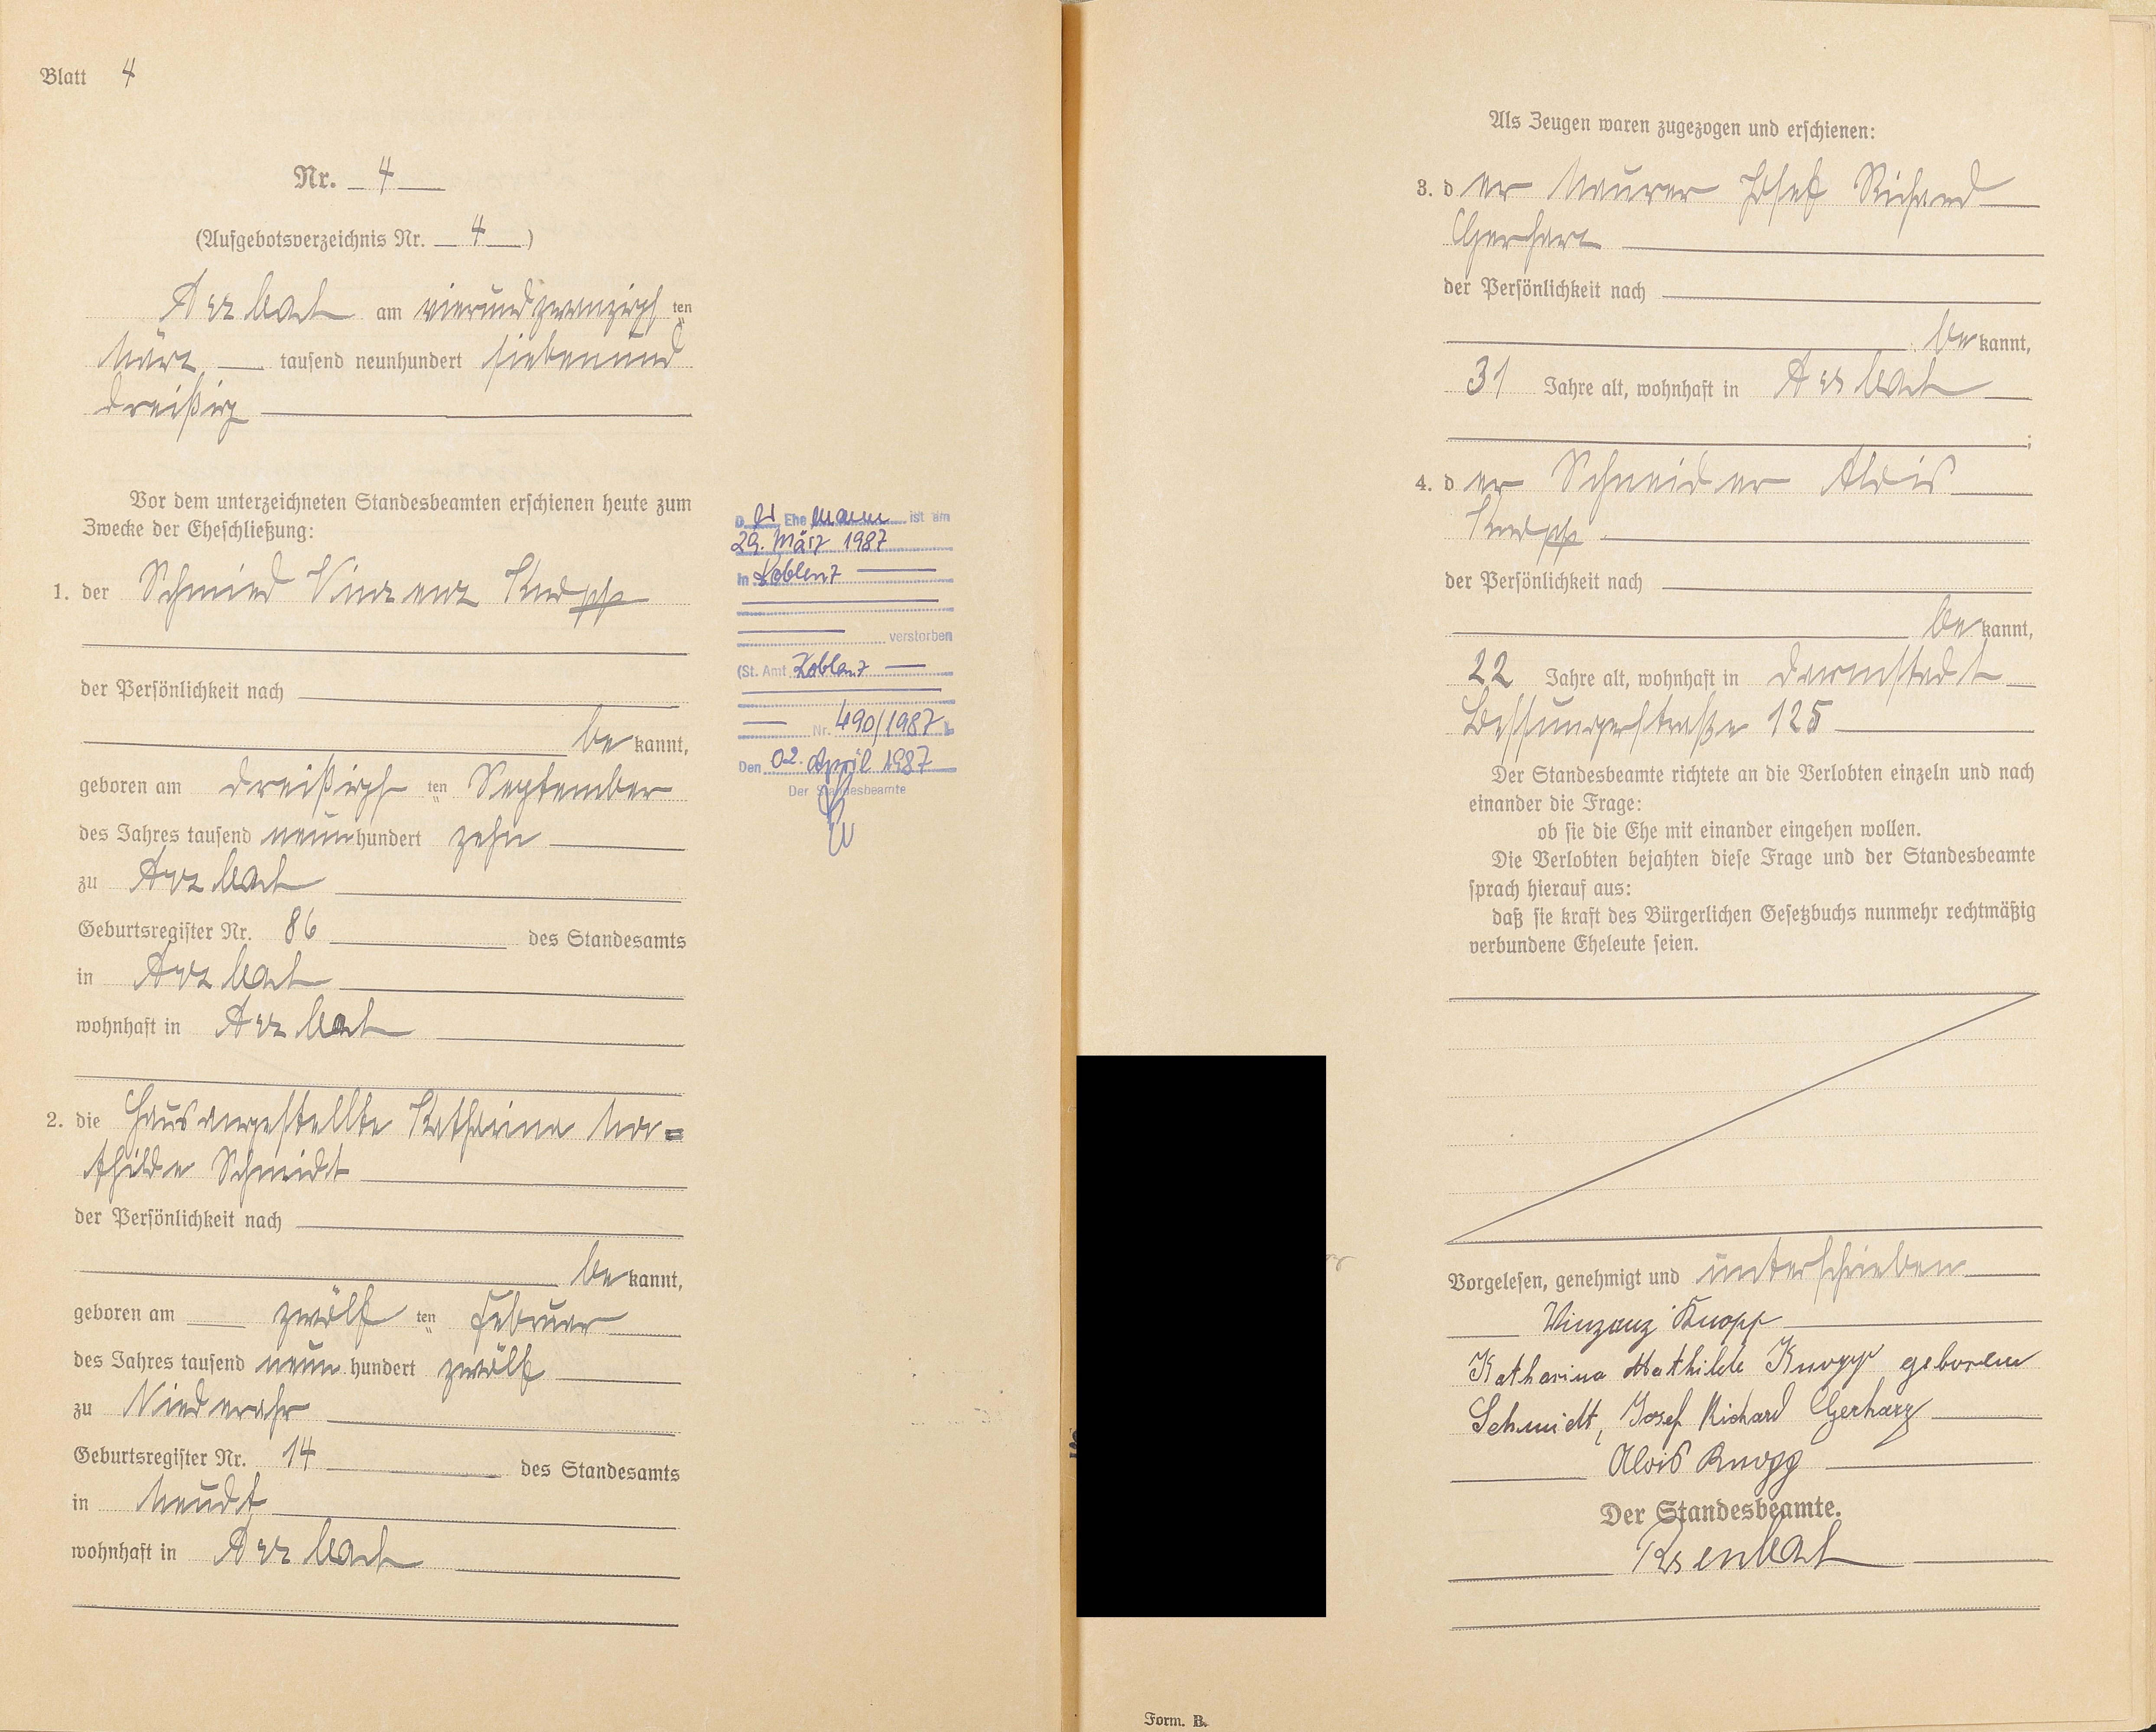 Blatt 4
Nr. 4
(Aufgebotsverzeichnis Nr. 4)
Arzbach am vierundzwanzigsten
März tausend neunhundert siebenund
dreißig
Vor dem unterzeichneten Standesbeamten erschienen heute zum
Zwecke der Eheschließung:
1. der Schmied Vinzenz Knopp
der Persönlichkeit nach
bekannt,
geboren am dreißigsten September
des Jahres tausend neunhundert zehn
zu Arzbach
Geburtsregister Nr. 86 des Standesamts
in Arzbach
wohnhaft in Arzbach
2. die Hausangestellte Katharina Ma=
thilde Schmidt
der Persönlichkeit nach
bekannt,
geboren am zwölften Februar
des Jahres tausend neunhundert zwölf
zu Niederahr
Geburtsregister Nr. 14 des Standesamts
in Meudt
wohnhaft in Arzbach
Der Ehemann ist am
29. März 1987
in Koblenz
verstorben
(St. Amt Koblenz
Nr. 490/1987
Den 02. April 1987
Der Standesbeamte
Als Zeugen waren zugezogen und erschienen:
3. der Maurer Josef Richard
Gerharz
der Persönlichkeit nach
bekannt,
31 Jahre alt, wohnhaft in Arzbach
;
4. der Schneider Alois
Knopp
der Persönlichkeit nach
bekannt,
22 Jahre alt, wohnhaft in Darmstadt
Bessungerstraße 125
Der Standesbeamte richtete an die Verlobten einzeln und nach
einander die Frage:
ob sie die Ehe mit einander eingehen wollen.
Die Verlobten bejahten diese Frage und der Standesbeamte
sprach hierauf aus:
daß sie kraft des Bürgerlichen Gesetzbuchs nunmehr rechtmäßig
verbundene Eheleute seien.
Vorgelesen, genehmigt und unterschrieben
Vinzenz Knopp
Katharina Mathilde Knopp geborene
Schmidt, Josef Richard Gerharz
Alois Knopp
Der Standesbeamte.
Form. B.